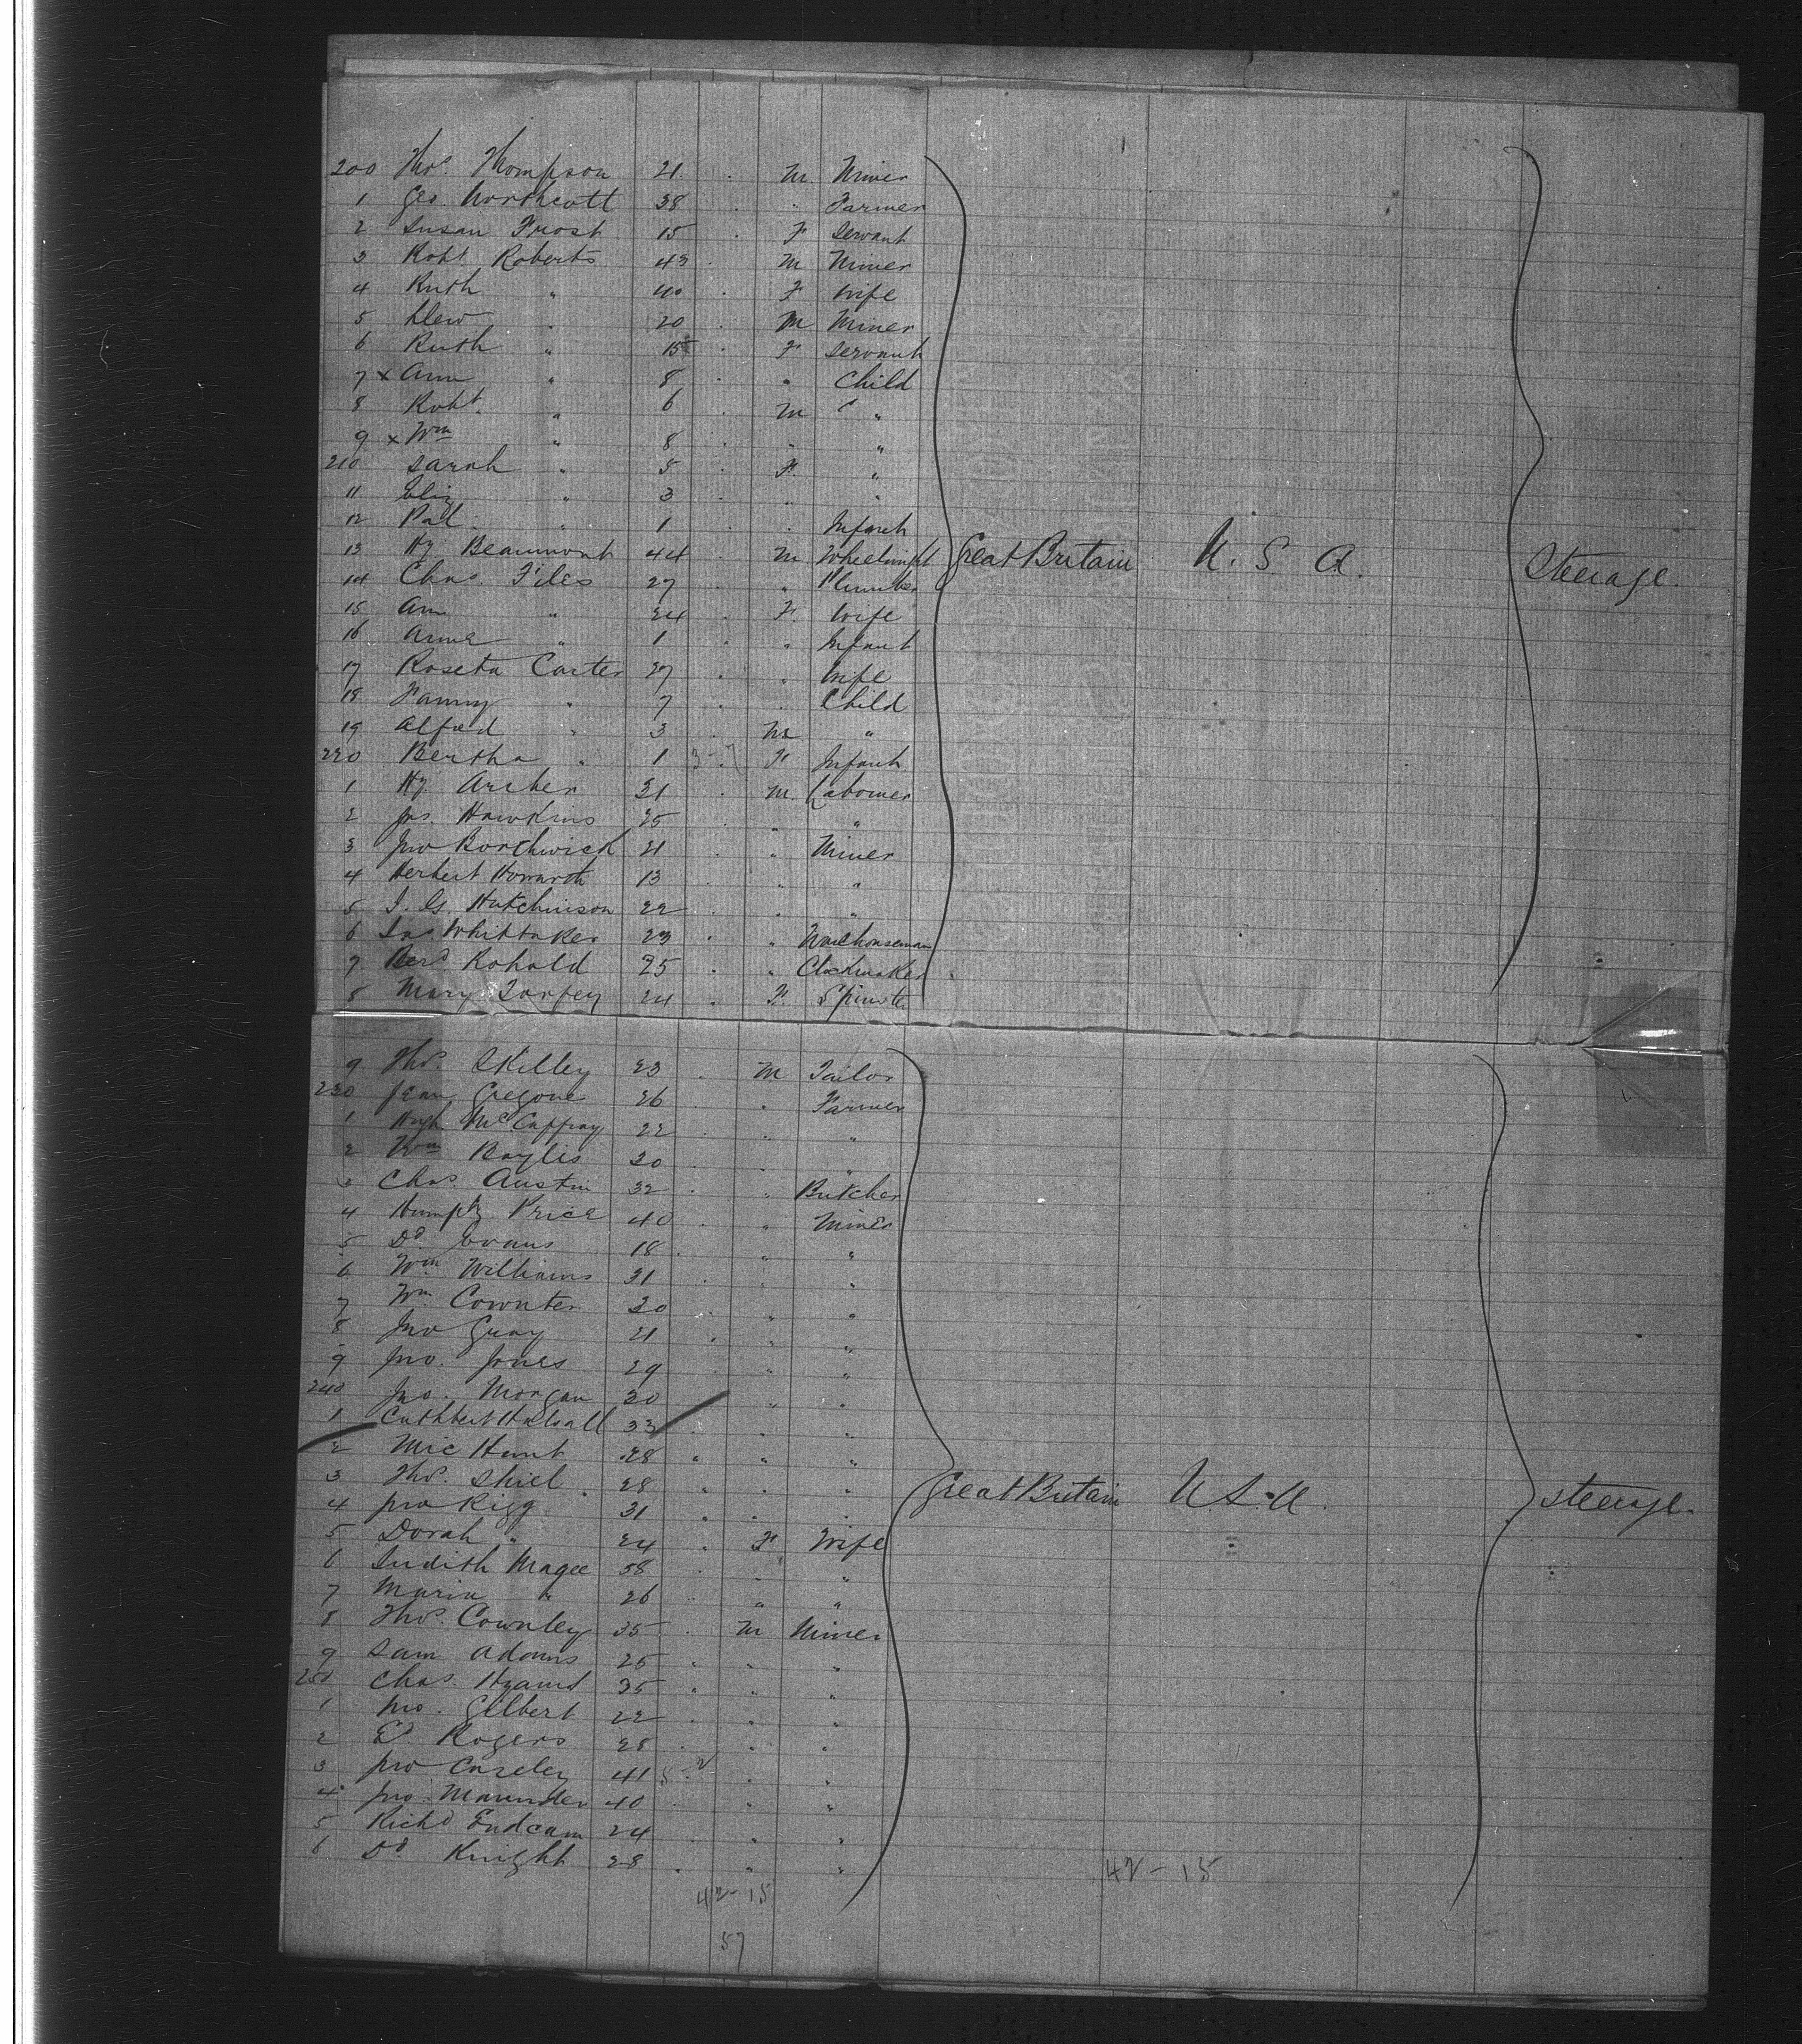 200 Thos. Thompson 21 . M Miner
1 Geo. Northcott 38 . " Farmer
2 Susan Frost 15 . F Servant
3 Robt. Roberts 43 . M Miner
4 Ruth " 40 . F Wife
5 Llew " 20 . M Miner
6 Ruth " 15 . F Servant
7 x Ann " 8 . " Child
8 Robt. " 6 . M "
9 x Wm " 8 . " "
210 Sarah " 5 . F "
11 Eliz " 3 . " "
12 Pat. " 1 . " Infant
13 Hy. Beaumont 44 . M Wheelwright Great Britain U. S. A. Steerage.
14 Chas. Files 27 " Plumber
15 Ann " 24 . F. Wife
16 Anna " 1 . " Infant
17 Roseta Carter 27 . " Wife
18 Fanny " 7 . " Child
19 Alfred " 3 . M "
220 Bertha " 1 3-7 F Infant
1 Hy. Archer 31 . M. Labourer
2 Jas. Hawkins 25 . " "
3 Jno Borthwick 21 . " Miner
4 Herbert Howarth 13 . " "
5 J. G. Hutchinson 22 . " "
6 Jas. Whittaker 23 . " Warehouseman
7 Berd. Kohold 25 . " Clockmaker
8 Mary Torpey 24 . F. Spinster
9 Thos. Skilley 23 . M Tailor
230 Jean Gregone 26 . " Farmer
1 Hugh McCaffray 22 . " "
2 Wm Baylis 30 . " "
3 Chas. Austin 32 . " Butcher
4 Humphy Price 40 . " Miner
5 Dd Evans 18 . " "
6 Wm Williams 31 . " "
7 Wm. Cownter 20 . " "
8 Jno Guay 21 . " "
9 Jno. Jones 29 . " "
240 Jno. Morgan 20 . " "
1 Cuthbert Halsall 33 . " "
2 Mic Hunt 28 " " "
3 Thos. Shiel 28 " " "
4 Jno Rigg 31 " " " Great Britain U S. A. Steerage.
5 Dorah " 24 " F Wife
6 Judith Magee 58 " "
7 Maria " 26 " " "
8 Thos. Cownley 35 . M Miner
9 Sam Adams 25 " " "
250 Chas. Hyams 35 " " "
1 Jno. Gilbert 22 . " "
2 Ed. Rogers 28 . " "
3 Jno Caseley 41 " "
4 Jno. Maunder 40 . " "
5 Richd Endcam 24 . " "
6 Dd. Knight 28 . " "
42-15 42-15
57